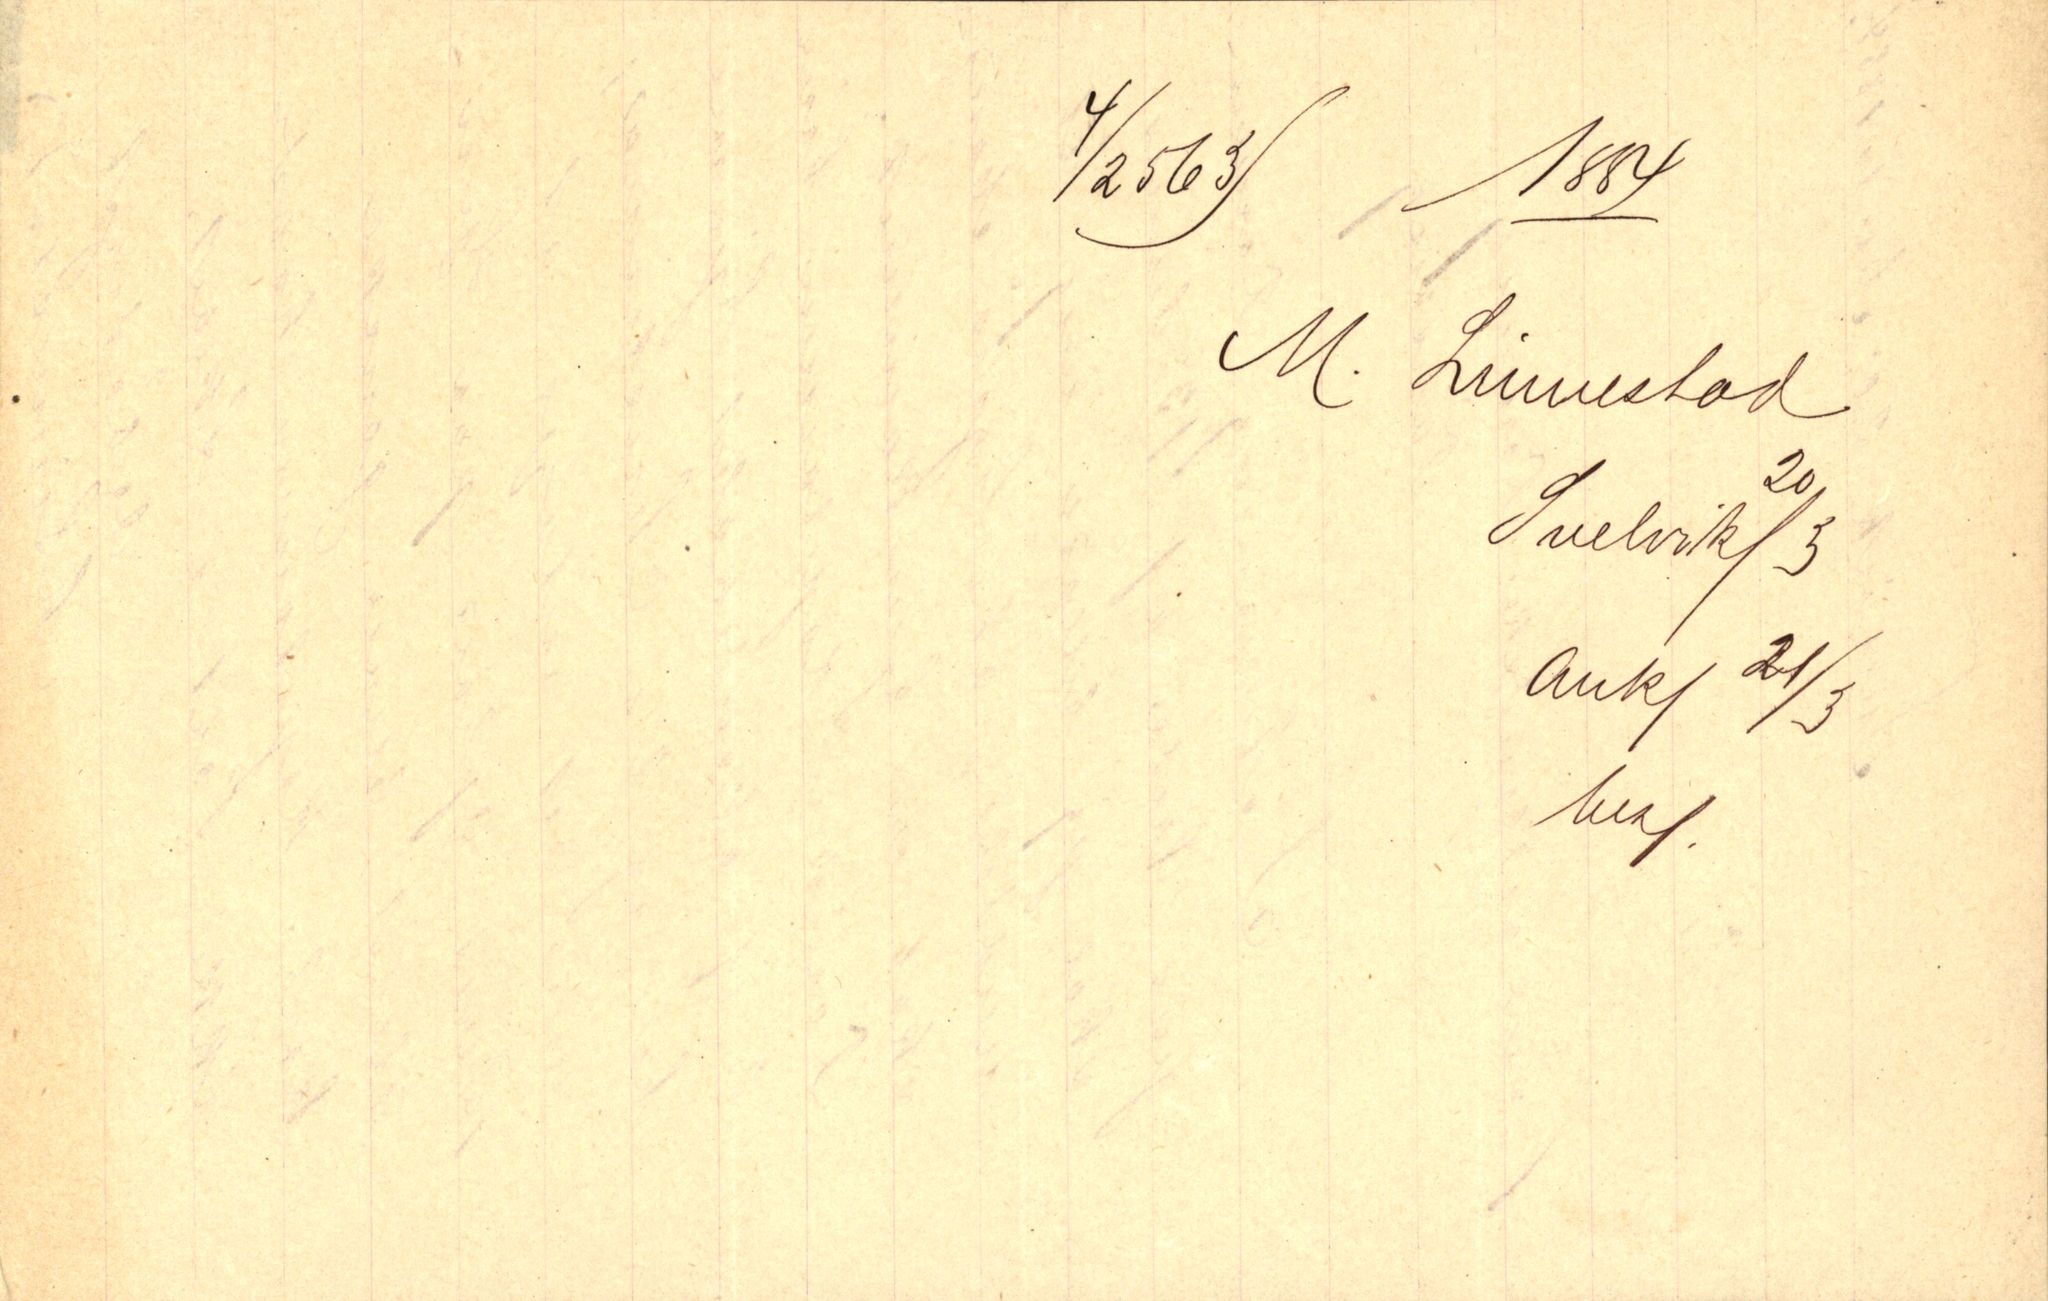 4/2563 1884
M. Linnestad
Svelvik 20/3
Ank 21/3
besv.